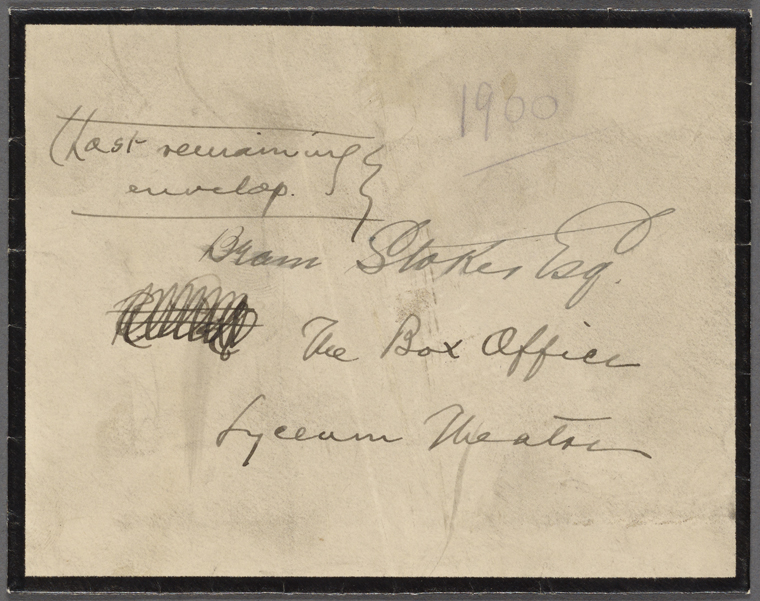 1900
(Last remaining
envelop.
Bram Stoker Esq.
The Box Office
Lyceum Theatre